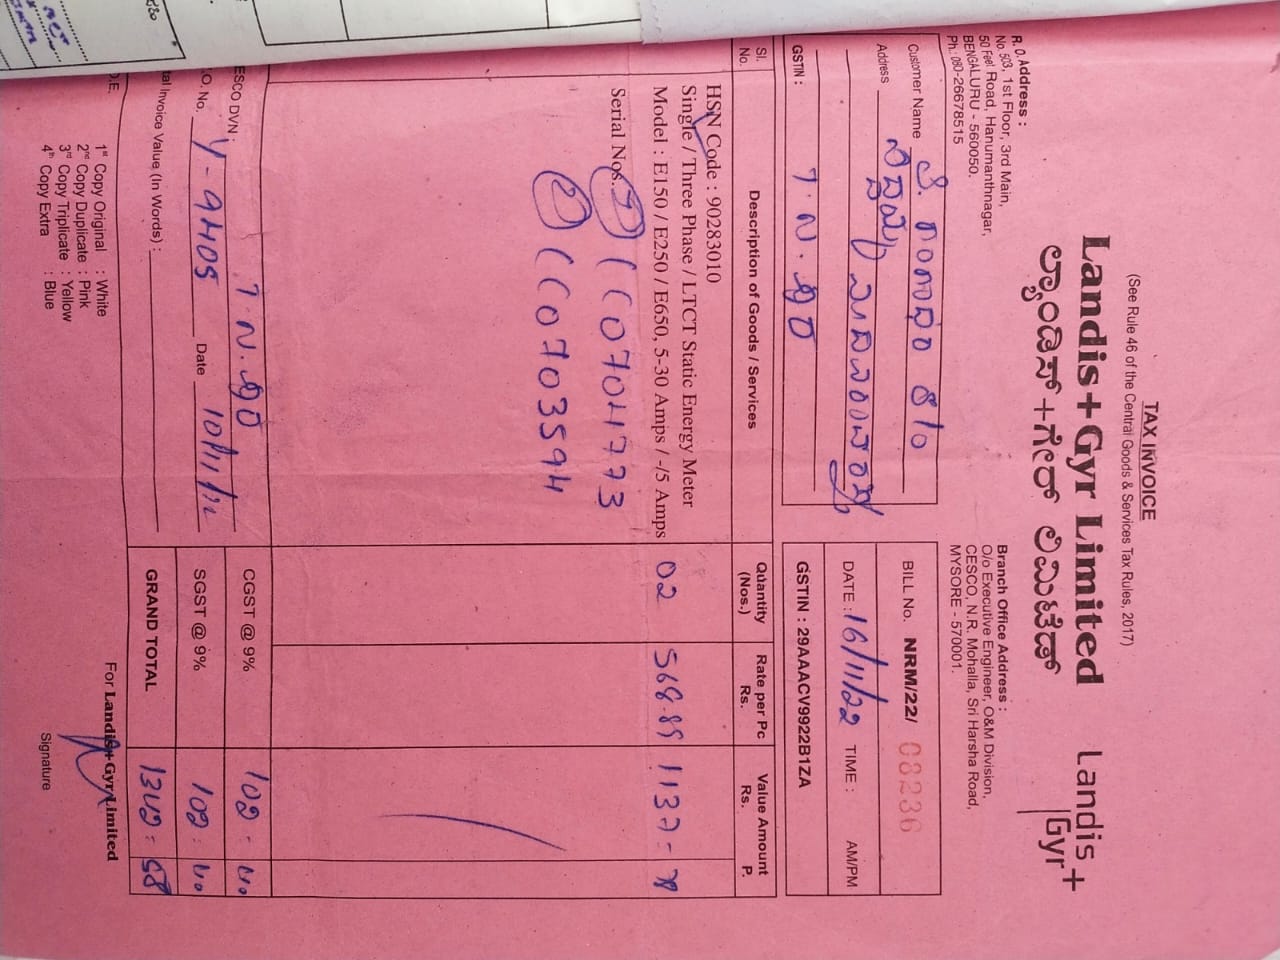 TAX INVOICE
(See Rule 46 of the Central Goods & Services Tax Rules, 2017)
Landis+Gyr Limited
Landis+
Gyr
ಲ್ಯಾಂಡಿಸ್+ಗೀರ್ ಲಿಮಿಟೆಡ್
R. O. Address :
No. 503, 1st Floor, 3rd Main,
50 Feet Road, Hanumanthnagar,
BENGALURU - 560050.
Ph.: 080-26678515
Branch Office Address :
O/o Executive Engineer, O&M Division,
CESCO, N.R. Mohalla, Sri Harsha Road,
MYSORE - 570001.
Customer Name
Address
GSTIN :
BILL No. NRM/22/ 03236
DATE : 16/11/22 TIME : AM/PM
GSTIN : 29AAACV9922B1ZA
Sl. No. Description of Goods / Services Quantity (Nos.) Rate per Pc Rs. Value Amount Rs. P.
HSN Code : 90283010
Single / Three Phase / LTCT Static Energy Meter
Model : E150 / E250 / E650, 5-30 Amps / -/5 Amps 02 568.89 1137 =
Serial Nos. 1 CC0704773
2 CC0703594
ESCO DVN :
.O. No. Y-9405 Date 10/11/22
tal Invoice Value (In Words) :
CGST @ 9% 102 = 40
SGST @ 9% 102 = 40
GRAND TOTAL 1342 = 58
O.E.
1st Copy Original : White
2nd Copy Duplicate : Pink
3rd Copy Triplicate : Yellow
4th Copy Extra : Blue
For Landis+Gyr Limited
Signature